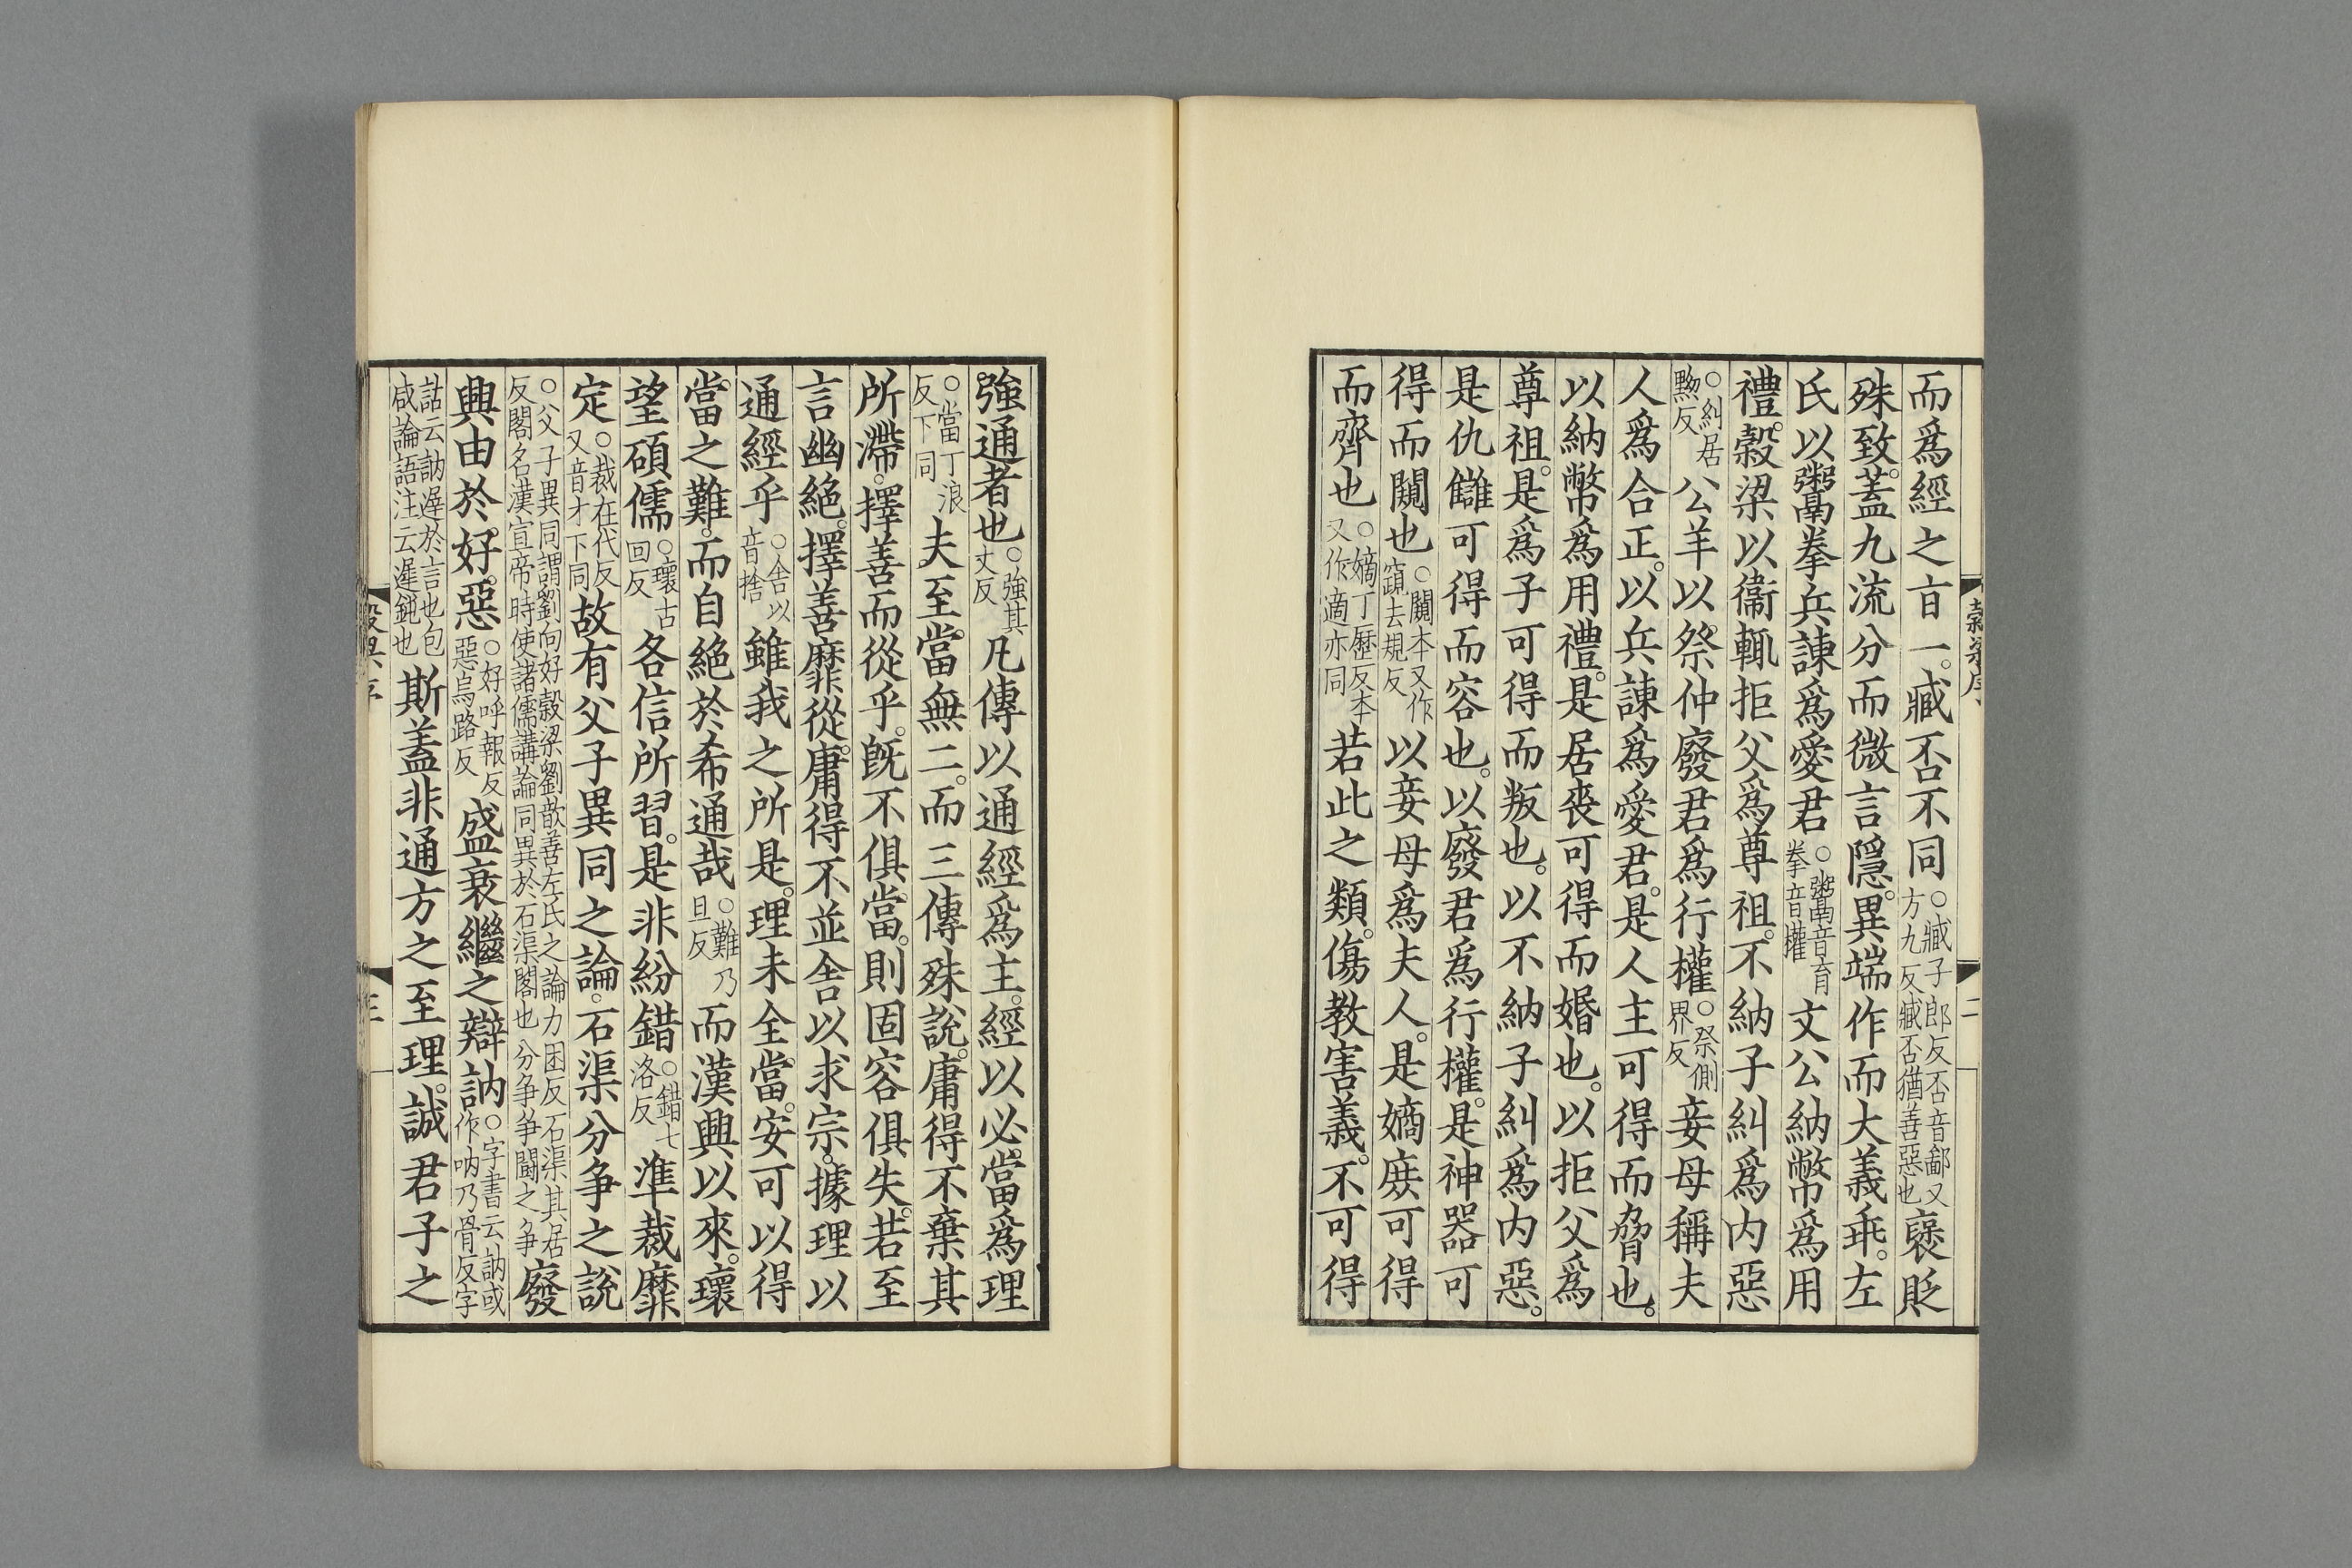 而爲經之㫖一。臧否不同○臧子郎反否音鄙又方九反臧否猶善惡也襃貶
殊致。蓋九流分而微言隱。異端作而大義乖。左
氏以鬻拳兵諫爲愛君○鬻音育拳音權文公納幣爲用
禮。榖梁以衞輒拒父爲尊祖。不納子糾爲内惡
○糾居黝反公羊以祭仲廢君爲行權○祭側界反妾母稱夫
人爲合正。以兵諫爲愛君。是人主可得而脅也。
以納幣爲用禮。是居喪可得而婚也。以拒父爲
尊祖。是爲子可得而叛也。以不納子糾爲内惡。
是仇讎可得而容也。以廢君爲行權。是神器可
得而闚也○闚本又作窺去規反以妾母爲夫人。是嫡庶可得
而齊也○嫡丁歷反本又作適亦同若此之類。傷教害義。不可得
強通者也○強其丈反凡傳以通經爲主。經以必當爲理
○當丁浪反下同夫至當無二。而三傳殊說。庸得不棄其
所滯。擇善而從乎。旣不俱當。則固容俱失。若至
言幽絶。擇善靡從。庸得不並舍以求宗。據理以
通經乎○舍以音捨雖我之所是。理未全當。安可以得
當之難。而自絶於希通哉○難乃旦反而漢興以來。瓌
望碩儒○瓌古回反各信所習。是非紛錯○錯七洛反準裁靡
定○裁在代反又音才下同故有父子異同之論。石渠分争之說
○父子異同謂劉向好榖梁劉歆善左氏之論力困反石渠其居反閣名漢宣帝時使諸儒講論同異於石渠閣也分争争鬭之争廢
興由於好惡○好呼報反惡烏路反盛衰繼之辯訥○字書云訥或作呐乃骨反字
詁云訥遲於言也包咸論語注云遲鈍也斯蓋非通方之至理。誠君子之